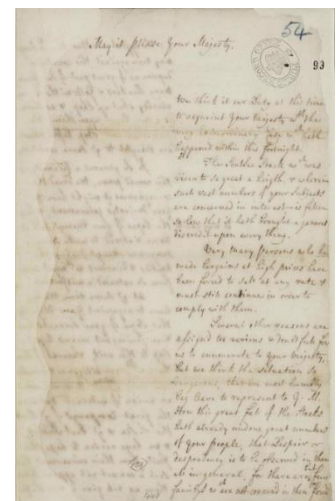 54
93
May it please Your Majesty,
We think it our Duty at this time
to acquaint Your Majesty wth the
very extraordinary wch hath
happened within this fortnight.
The Souths Stock wch was
risen to so great a heigth & wherein
such vast numbers of your Subjects
are concerned in interest is fallen
so low that it hath brought a general
discredit upon every thing.
Very many persons who had
made bargains at high prices have
been forced to sell at any rate &
must still continue in order to
comply with them.
Several other reasons are
assigned too various & doubtful for
us to enumerate to your Majesty,
but we think the situation so
dangerous, that we most humbly
beg leave to represent to Y. M.
How this great fall of the Stocks
hath already undone great numbers
of your people, that Despair or
despondency is to be observed in them
all in general, for there are few
families wch are not